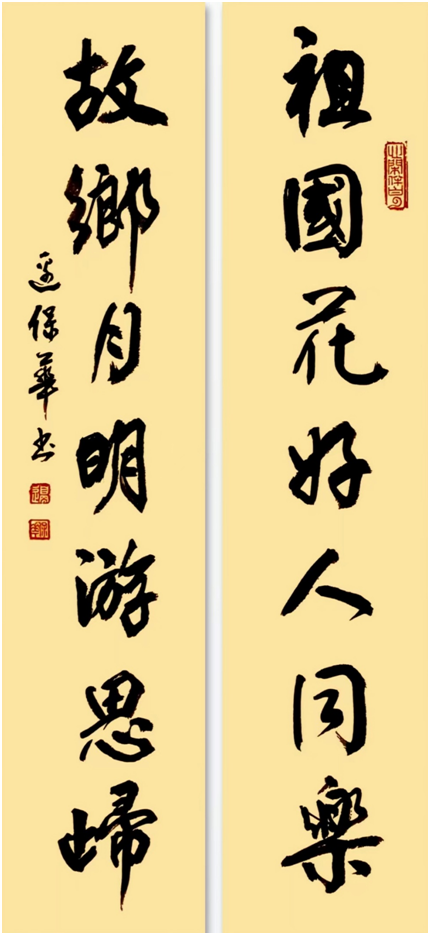 祖國花好人同樂
故鄉月明游思歸
保華书